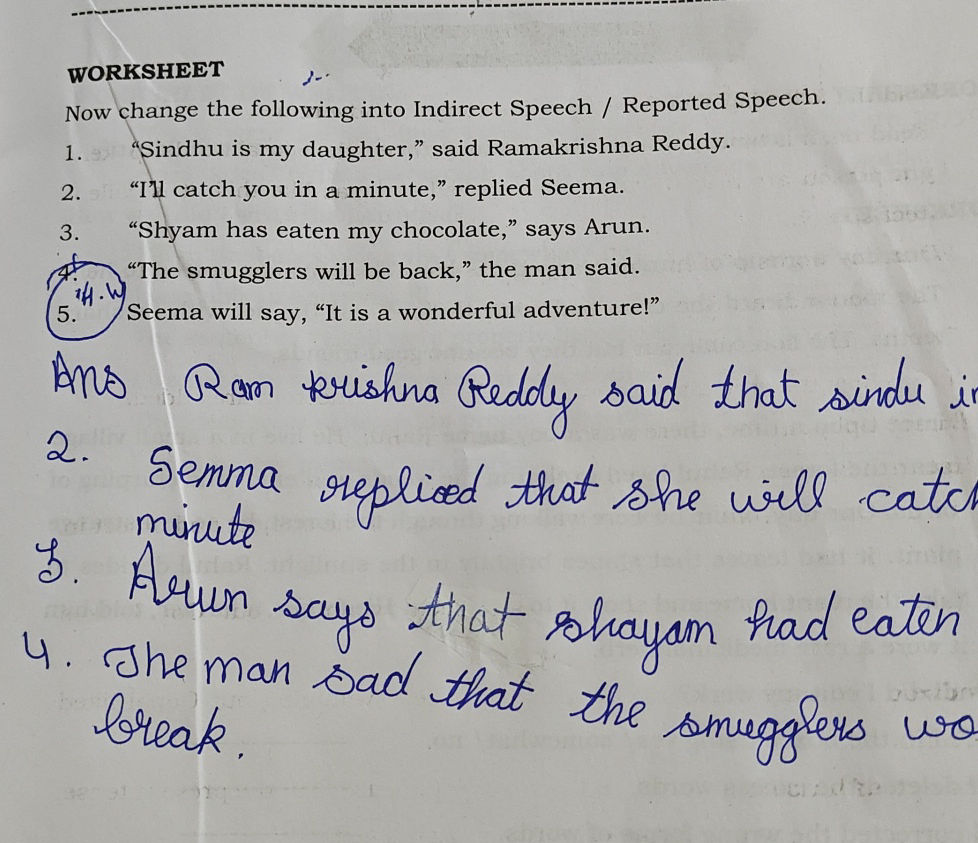 WORKSHEET
Now change the following into Indirect Speech / Reported Speech.
1. "Sindhu is my daughter," said Ramakrishna Reddy.
2. "I'll catch you in a minute," replied Seema.
3. "Shyam has eaten my chocolate," says Arun.
4. "The smugglers will be back," the man said.
H.W
5. Seema will say, "It is a wonderful adventure!"
Ans Ram krishna Reddy said that sindu
2. Semma replied that she will catch
minute
3. Arun says that shayam had eaten
4. The man sad that the smugglers wo
break.